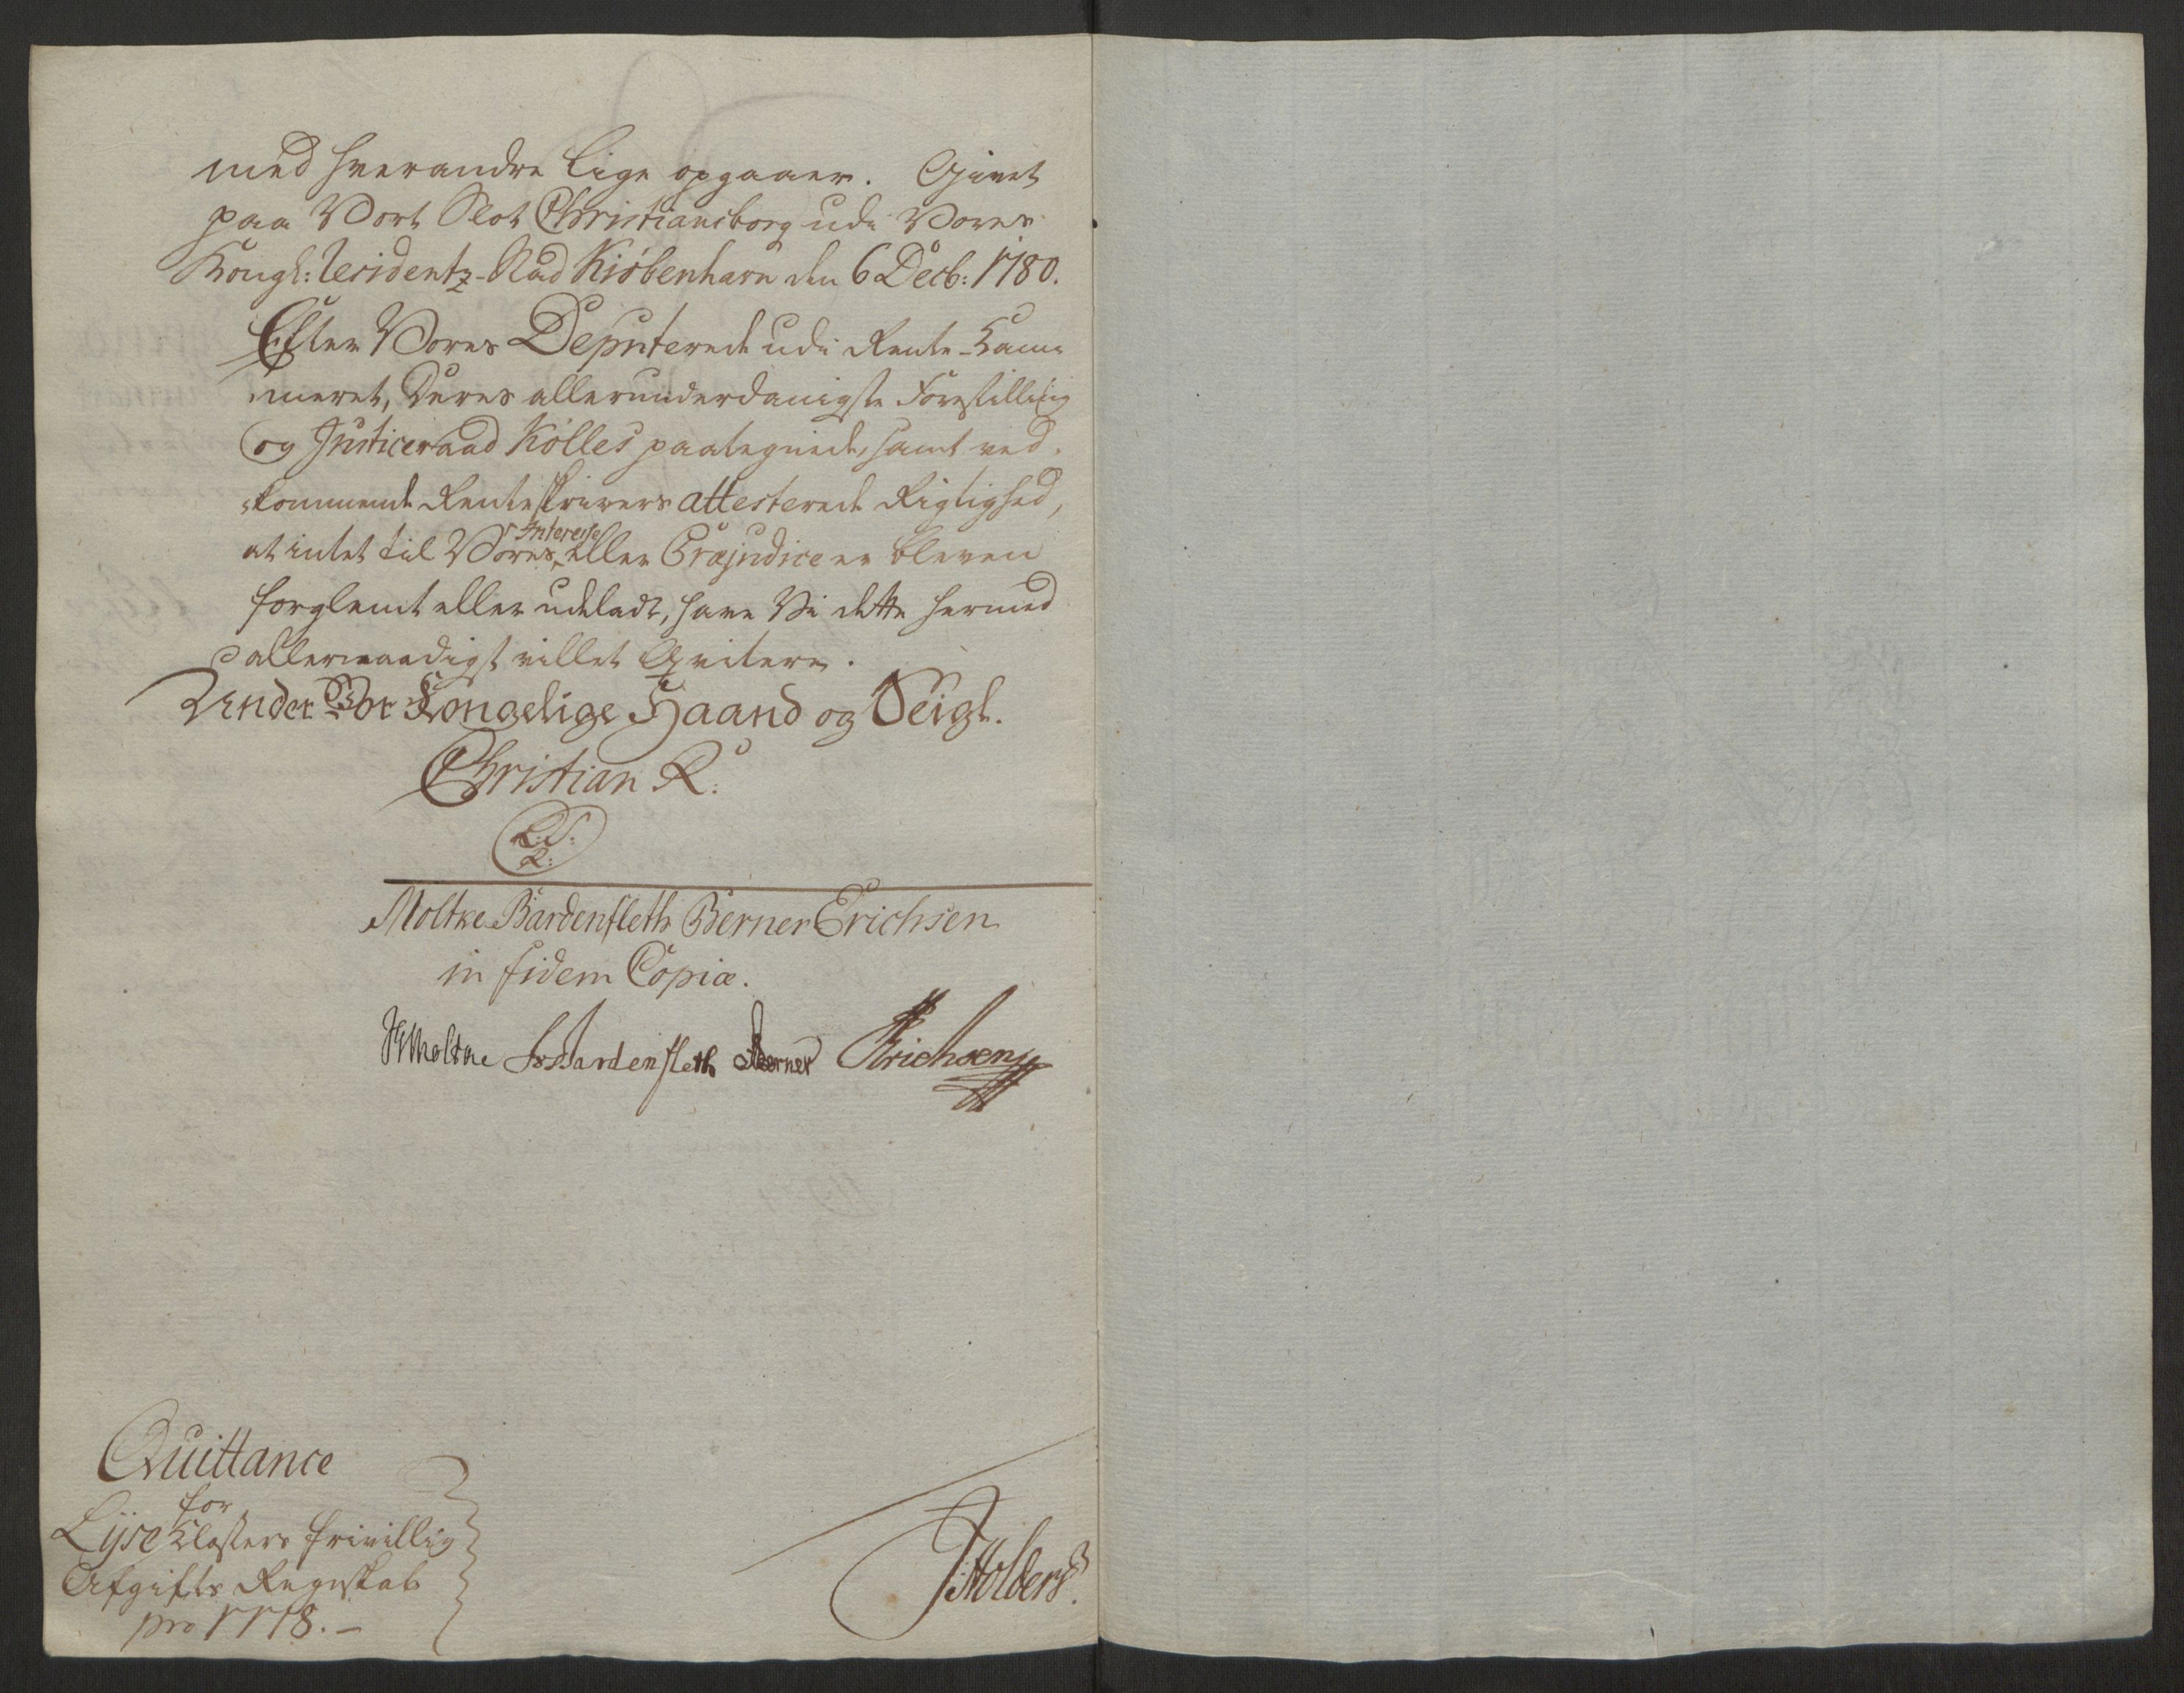 med hverandre lige opgaaer. Givet
paa Vort Slot Christiansborg udi Vores
Kongl: Residentz-Stad Kiøbenhavn den 6 Decb: 1780.
Efter Vores Deputerede udi Rente-Kam-
meret, Deres allerunderdanigste Forestilling
og Justiceraad Kølles paategnede, samt ved-
kommende Renteskrivers attesterede Rigtighed,
at intet til Vores Interesse eller Præjudice er bleven
forglemt eller udeladt, have Vi dette hermed
allernaadigst villet Qvitere.
Under Vor Kongelige Haand og Seigl.
Christian R.
L.S.
R:
Moltke Bardenfleth Berner Erichsen
in fidem Copiæ.
Moltke Bardenfleth Berner Erichsen
Quittance
for
Lyse Klosters frivillig
Afgifts Regnskab
pro 1778.-
Holbers.